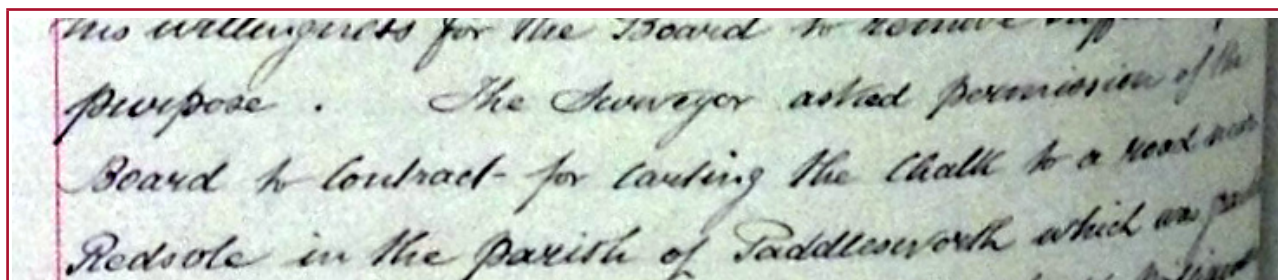 his willingness for the Board to remove
purpose. The Surveyor asked permission of the
Board to Contract for carting the Chalk to a road near
Redsole in the parish of Paddlesworth which was